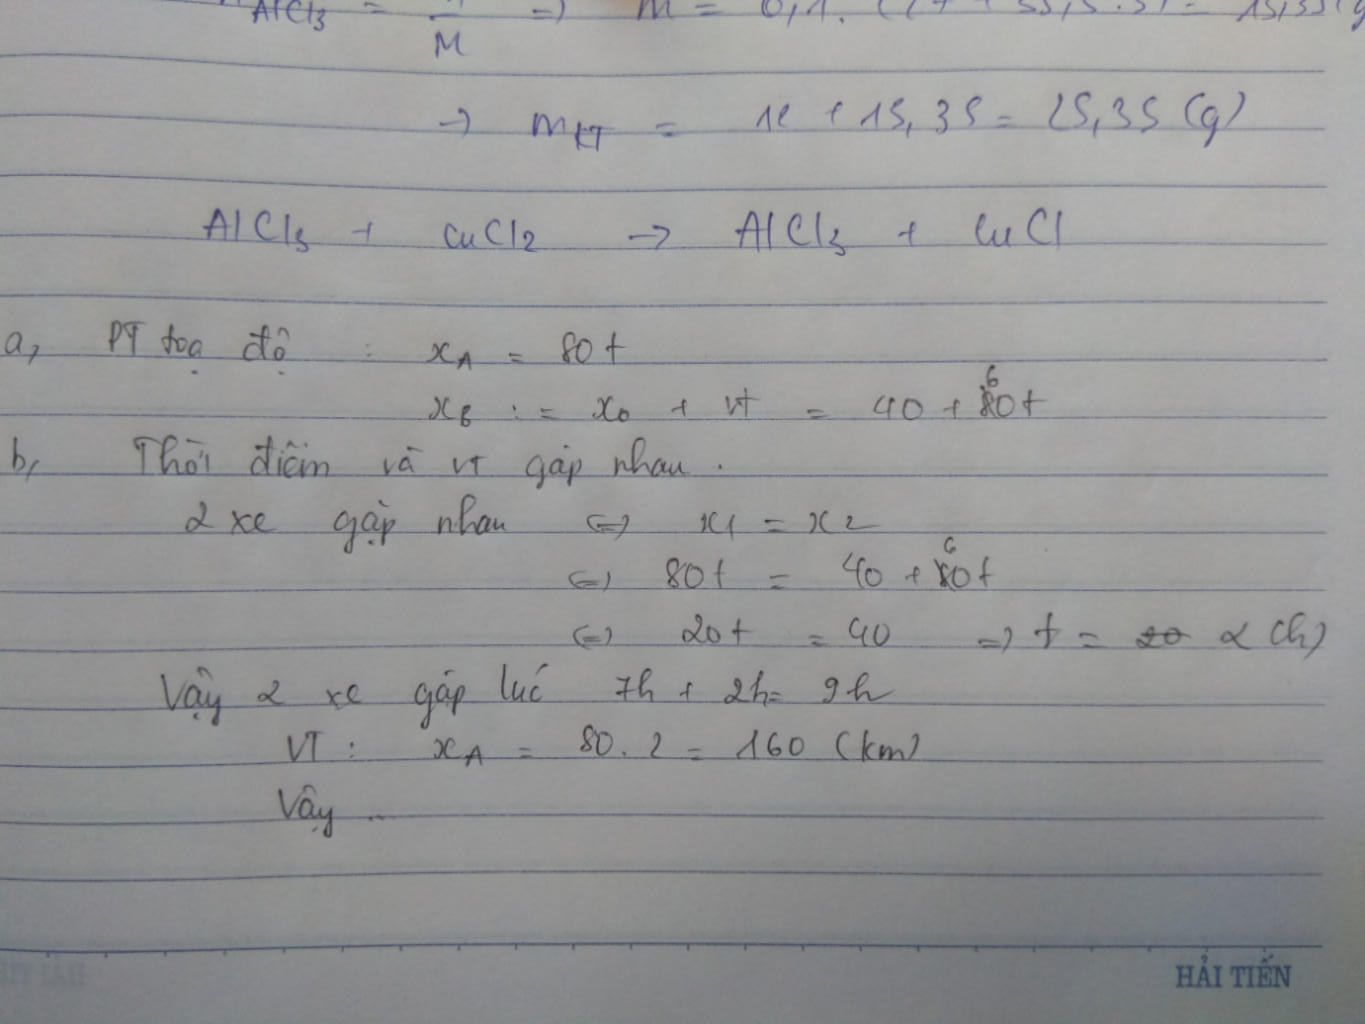 AlCl3 = M => m = 0,1.
-> mKT = 10 + 15,35 = 25,35 (g)
AlCl3 + CuCl2 -> AlCl3 + CuCl
a, PT toạ độ : xA = 80t
xB : = x0 + vt = 40 + 60t
b, Thời điểm và VT gặp nhau.
2 xe gặp nhau <=> x1 = x2
<=> 80t = 40 + 60t
<=> 20t = 40 => t = 2 (h)
Vậy 2 xe gặp lúc 7h + 2h = 9h
VT : xA = 80.2 = 160 (km)
Vậy ..
HẢI TIẾN